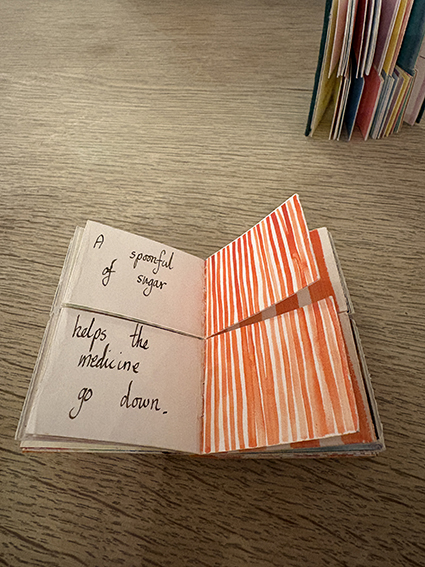 A spoonful
of sugar
helps the
medicine
go down.